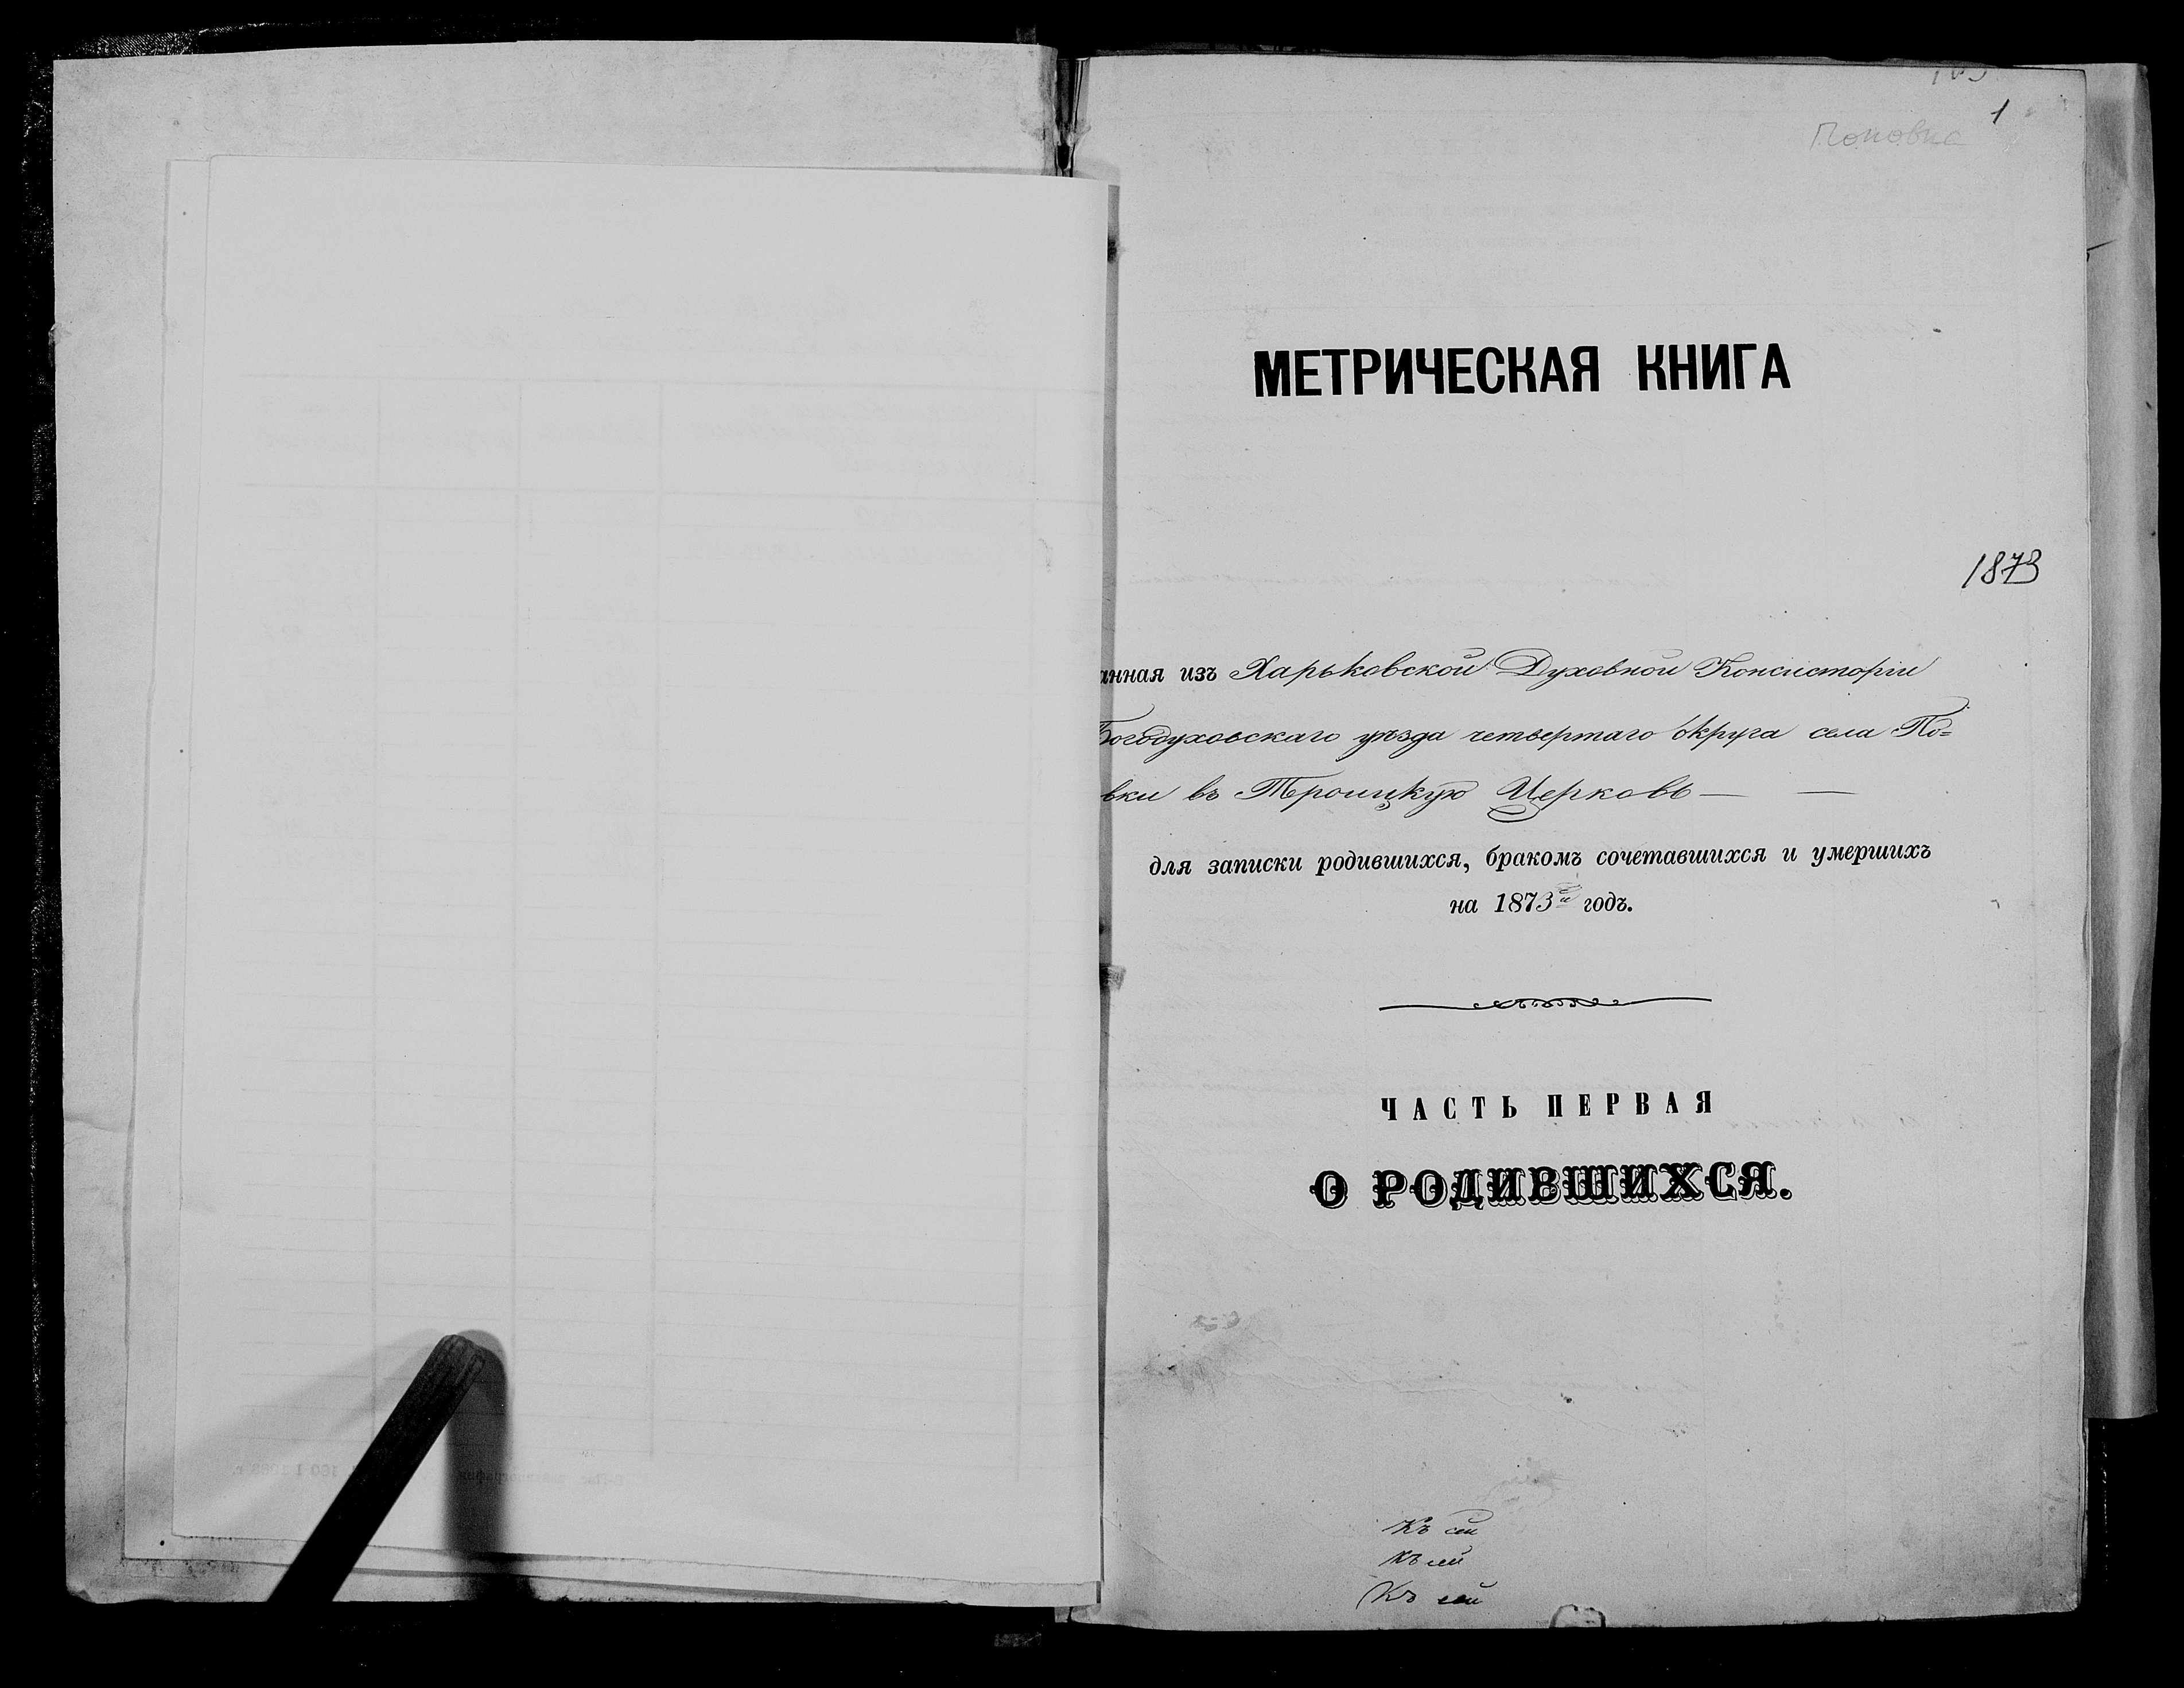 1
Поповка
МЕТРИЧЕСКАЯ КНИГА
1873
анная изъ Харьковской Духовной Консисторіи
Богодуховскаго уѣзда четвертаго округа села По=
вки въ Троицкую Церковь — —
для записки родившихся, бракомъ сочетавшихся и умершихъ
на 1873й годъ.
ЧАСТЬ ПЕРВАЯ
О РОДИВШИХСЯ.
Къ сей
Къ сей
Къ сей